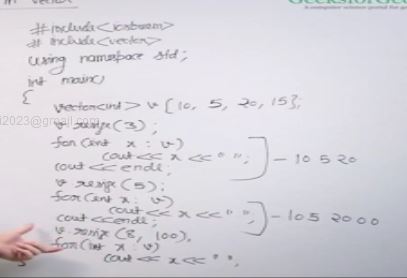 in vector
GeeksforGeeks
A computer science portal for ge
#include<iostream>
# include<vector>
using namespace std;
int main()
{
vector<int> v {10, 5, 20, 15};
v.resize(3);
for(int x : v)
cout << x << " ";
cout << endl;
- 10 5 20
v.resize(5);
for(int x : v)
cout << x << " ";
cout << endl;
- 10 5 20 0 0
v.resize(8, 100),
for(int x : v)
cout << x << " ",
i2023@gmail.com